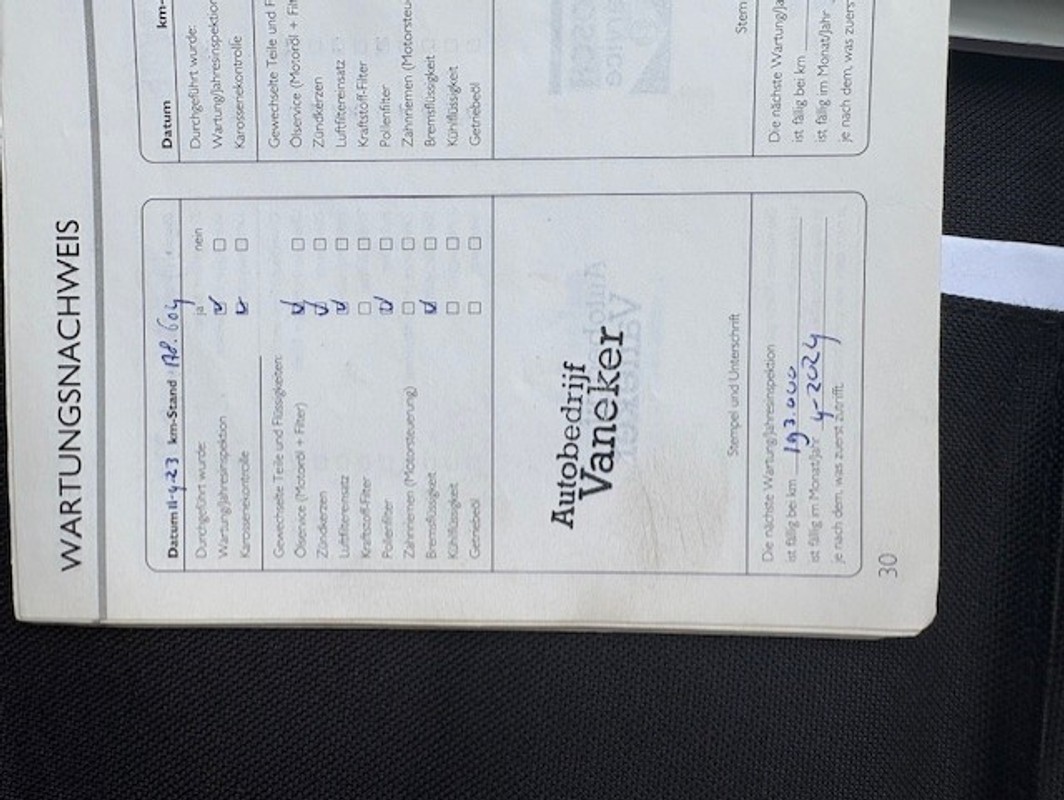 WARTUNGSNACHWEIS
Datum 11-4-23 km-Stand 178.604
Durchgeführt wurde: ja nein
Wartung/Jahresinspektion
Karosseriekontrolle
Gewechselte Teile und Flüssigkeiten:
Ölservice (Motoröl + Filter)
Zündkerzen
Luftfiltereinsatz
Kraftstoff-Filter
Pollenfilter
Zahnriemen (Motorsteuerung)
Bremsflüssigkeit
Kühlflüssigkeit
Getriebeöl
Autobedrijf
Vaneker
Stempel und Unterschrift
Die nächste Wartung/Jahresinspektion
ist fällig bei km 193.000
ist fällig im Monat/Jahr 4-2024
je nach dem, was zuerst zutrifft.
30
Datum km-
Durchgeführt wurde:
Wartung/Jahresinspektion
Karosseriekontrolle
Gewechselte Teile und F
Ölservice (Motoröl + Filt
Zündkerzen
Luftfiltereinsatz
Kraftstoff-Filter
Pollenfilter
Zahnriemen (Motorsteu
Bremsflüssigkeit
Kühlflüssigkeit
Getriebeöl
Stem
Die nächste Wartung/Ja
ist fällig bei km
ist fällig im Monat/Jahr
je nach dem, was zuerst